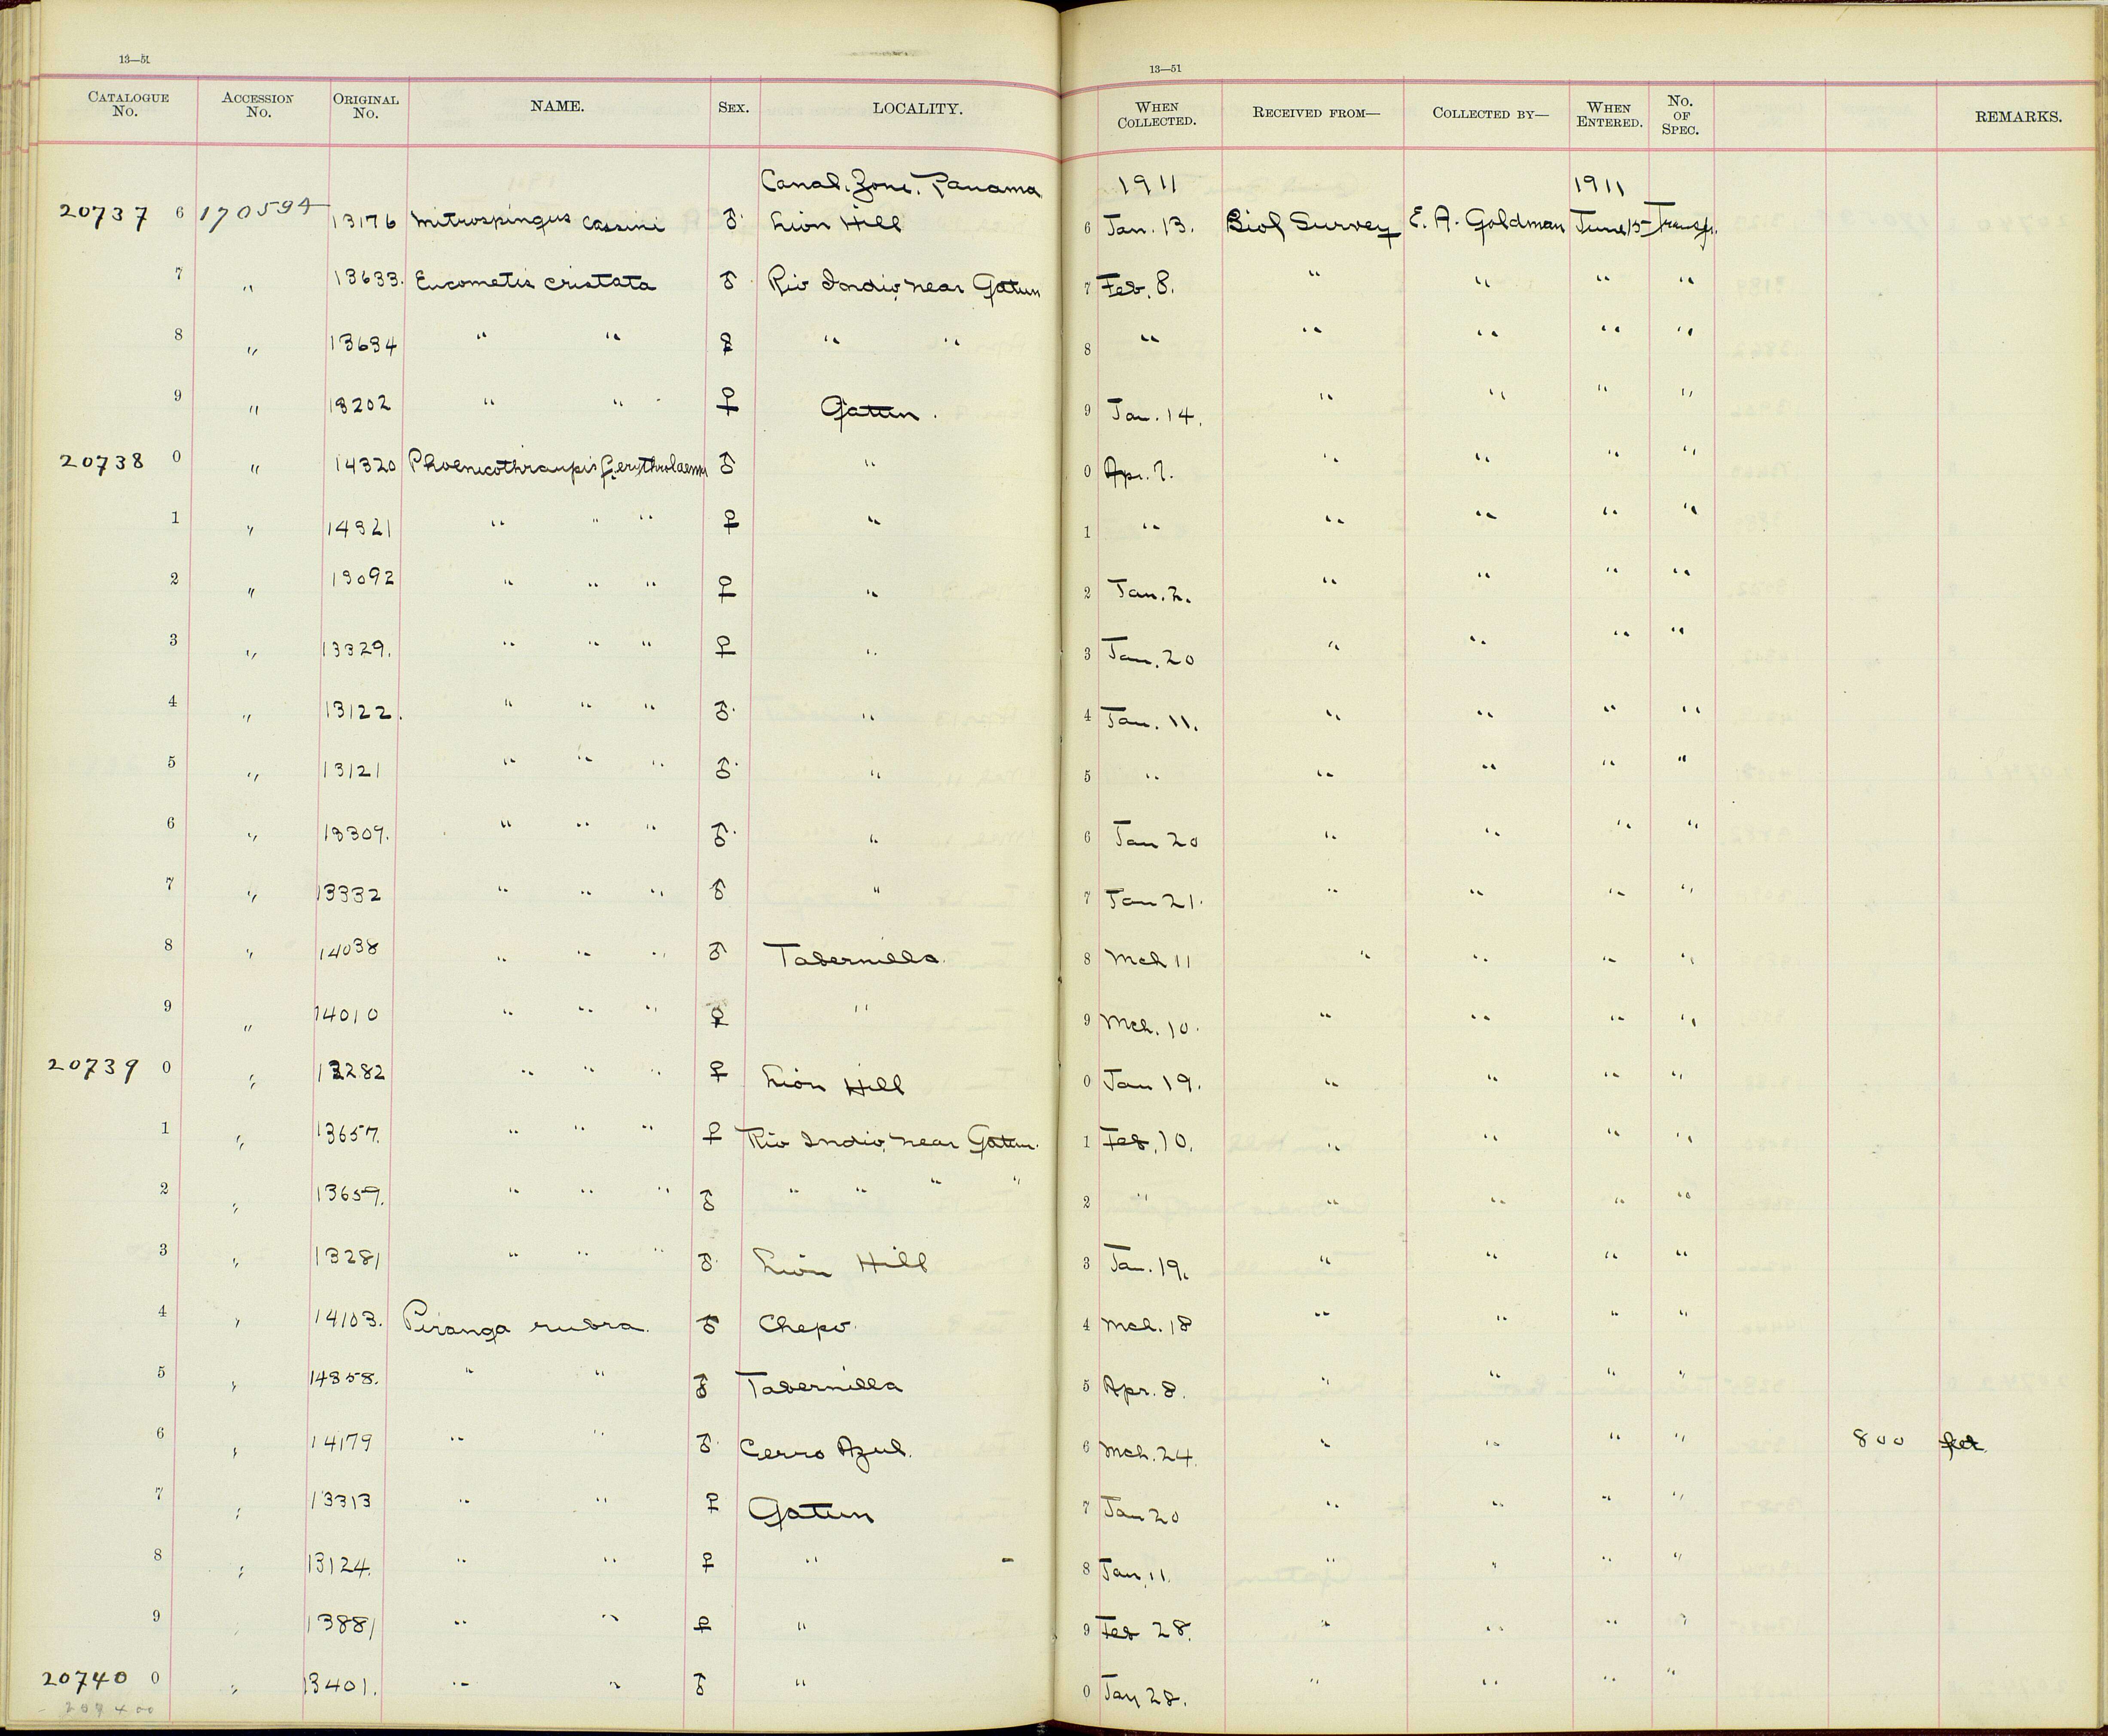 13—51 13—51
CATALOGUE No. ACCESSION No. ORIGINAL No. NAME. SEX. LOCALITY. WHEN COLLECTED. RECEIVED FROM— COLLECTED BY— WHEN ENTERED. No. OF SPEC. REMARKS.
Canal. Zone. Panama 1911 1911
20737 6 170594 13176 Mitrospingus cassini ♂ Lion Hill 6 Jan. 13. Biol Survey E. A. Goldman June 15 Transf.
7 " 13633. Eucometis cristata ♂ Rio Indio, near Gatun 7 Feb. 8. " " " "
8 " 13634 " " ♀ " " 8 " " " " "
9 " 13202 " " ♀ Gatun. 9 Jan. 14. " " " "
20738 0 " 14320 Phoenicothraupis f. erythrolaema ♂ " 0 Apr. 7. " " " "
1 " 14321 " " " ♀ " 1 " " " " "
2 " 13092 " " " ♀ " 2 Jan. 2. " " " "
3 " 13329. " " " ♀ " 3 Jan. 20 " " " "
4 " 13122. " " " ♂ " 4 Jan. 11. " " " "
5 " 13121 " " " ♂ " 5 " " " " "
6 " 13309. " " " ♂ " 6 Jan 20 " " " "
7 " 13332 " " " ♂ " 7 Jan 21. " " " "
8 " 14038 " " " ♂ Tabernilla. 8 Mch 11 " " " "
9 " 14010 " " " ♀ " 9 Mch. 10. " " " "
20739 0 " 13282 " " " ♀ Lion Hill 0 Jan 19. " " " "
1 " 13657. " " " ♀ Rio Indio, near Gatun. 1 Feb. 10. " " " "
2 " 13659. " " " ♂ " " " " 2 " " " " "
3 " 13281 " " " ♂ Lion Hill 3 Jan. 19. " " " "
4 " 14103. Piranga rubra. ♂ Chepo. 4 Mch. 18 " " " "
5 " 14358. " " ♂ Tabernilla 5 Apr. 8. " " " "
6 " 14179 " " ♂ Cerro Azul. 6 Mch. 24. " " " " 800 feet
7 " 13313 " " ♀ Gatun 7 Jan 20 " " " "
8 " 13124. " " ♀ " 8 Jan. 11. " " " "
9 " 13881 " " ♀ " 9 Feb 28. " " " "
20740 0 " 13401. " " ♂ " 0 Jan 28. " " " "
207400